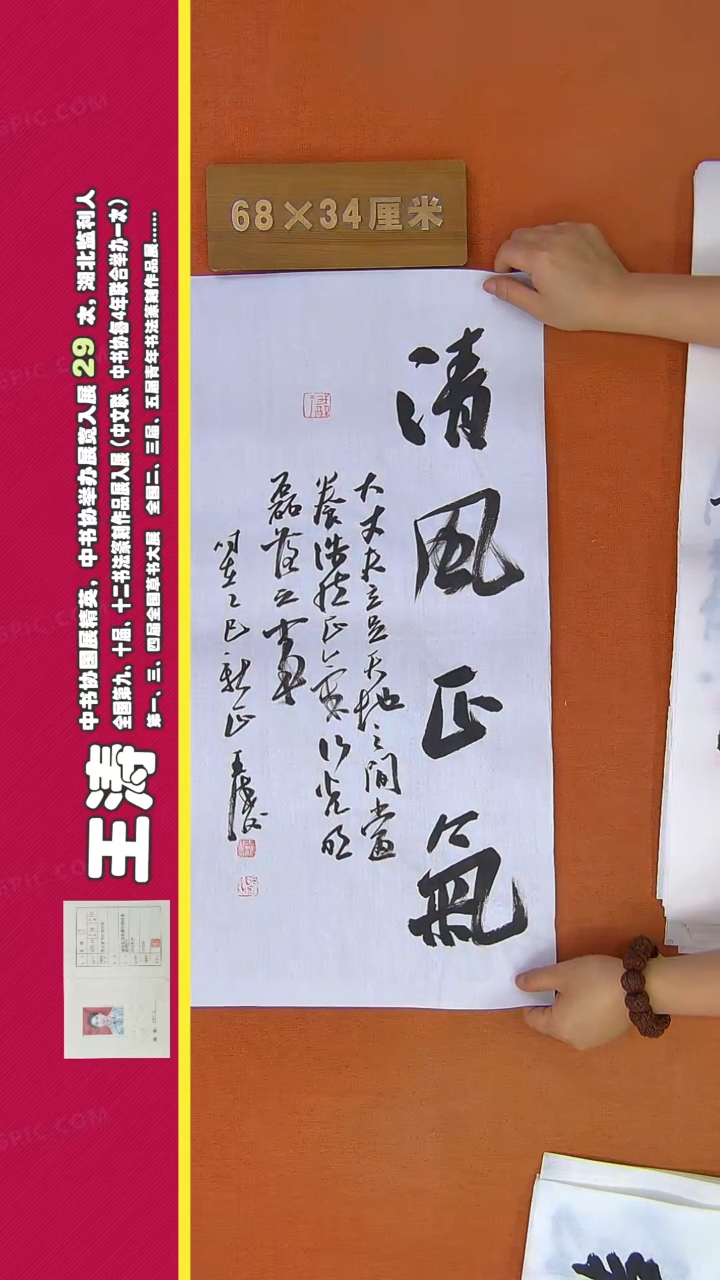 68×34厘米
清风正氣
大丈夫立足天地之间当
养浩然正气 行光明
磊落之事
时在乙巳 新正 王涛
王涛
中书协国展精英，中书协举办展览入展 29 次，湖北监利人
全国第九、十届、十二书法篆刻作品展入展（中文联、中书协每4年联合举办一次）
第一、三、四届全国草书大展 全国二、三届、五届青年书法篆刻作品展......